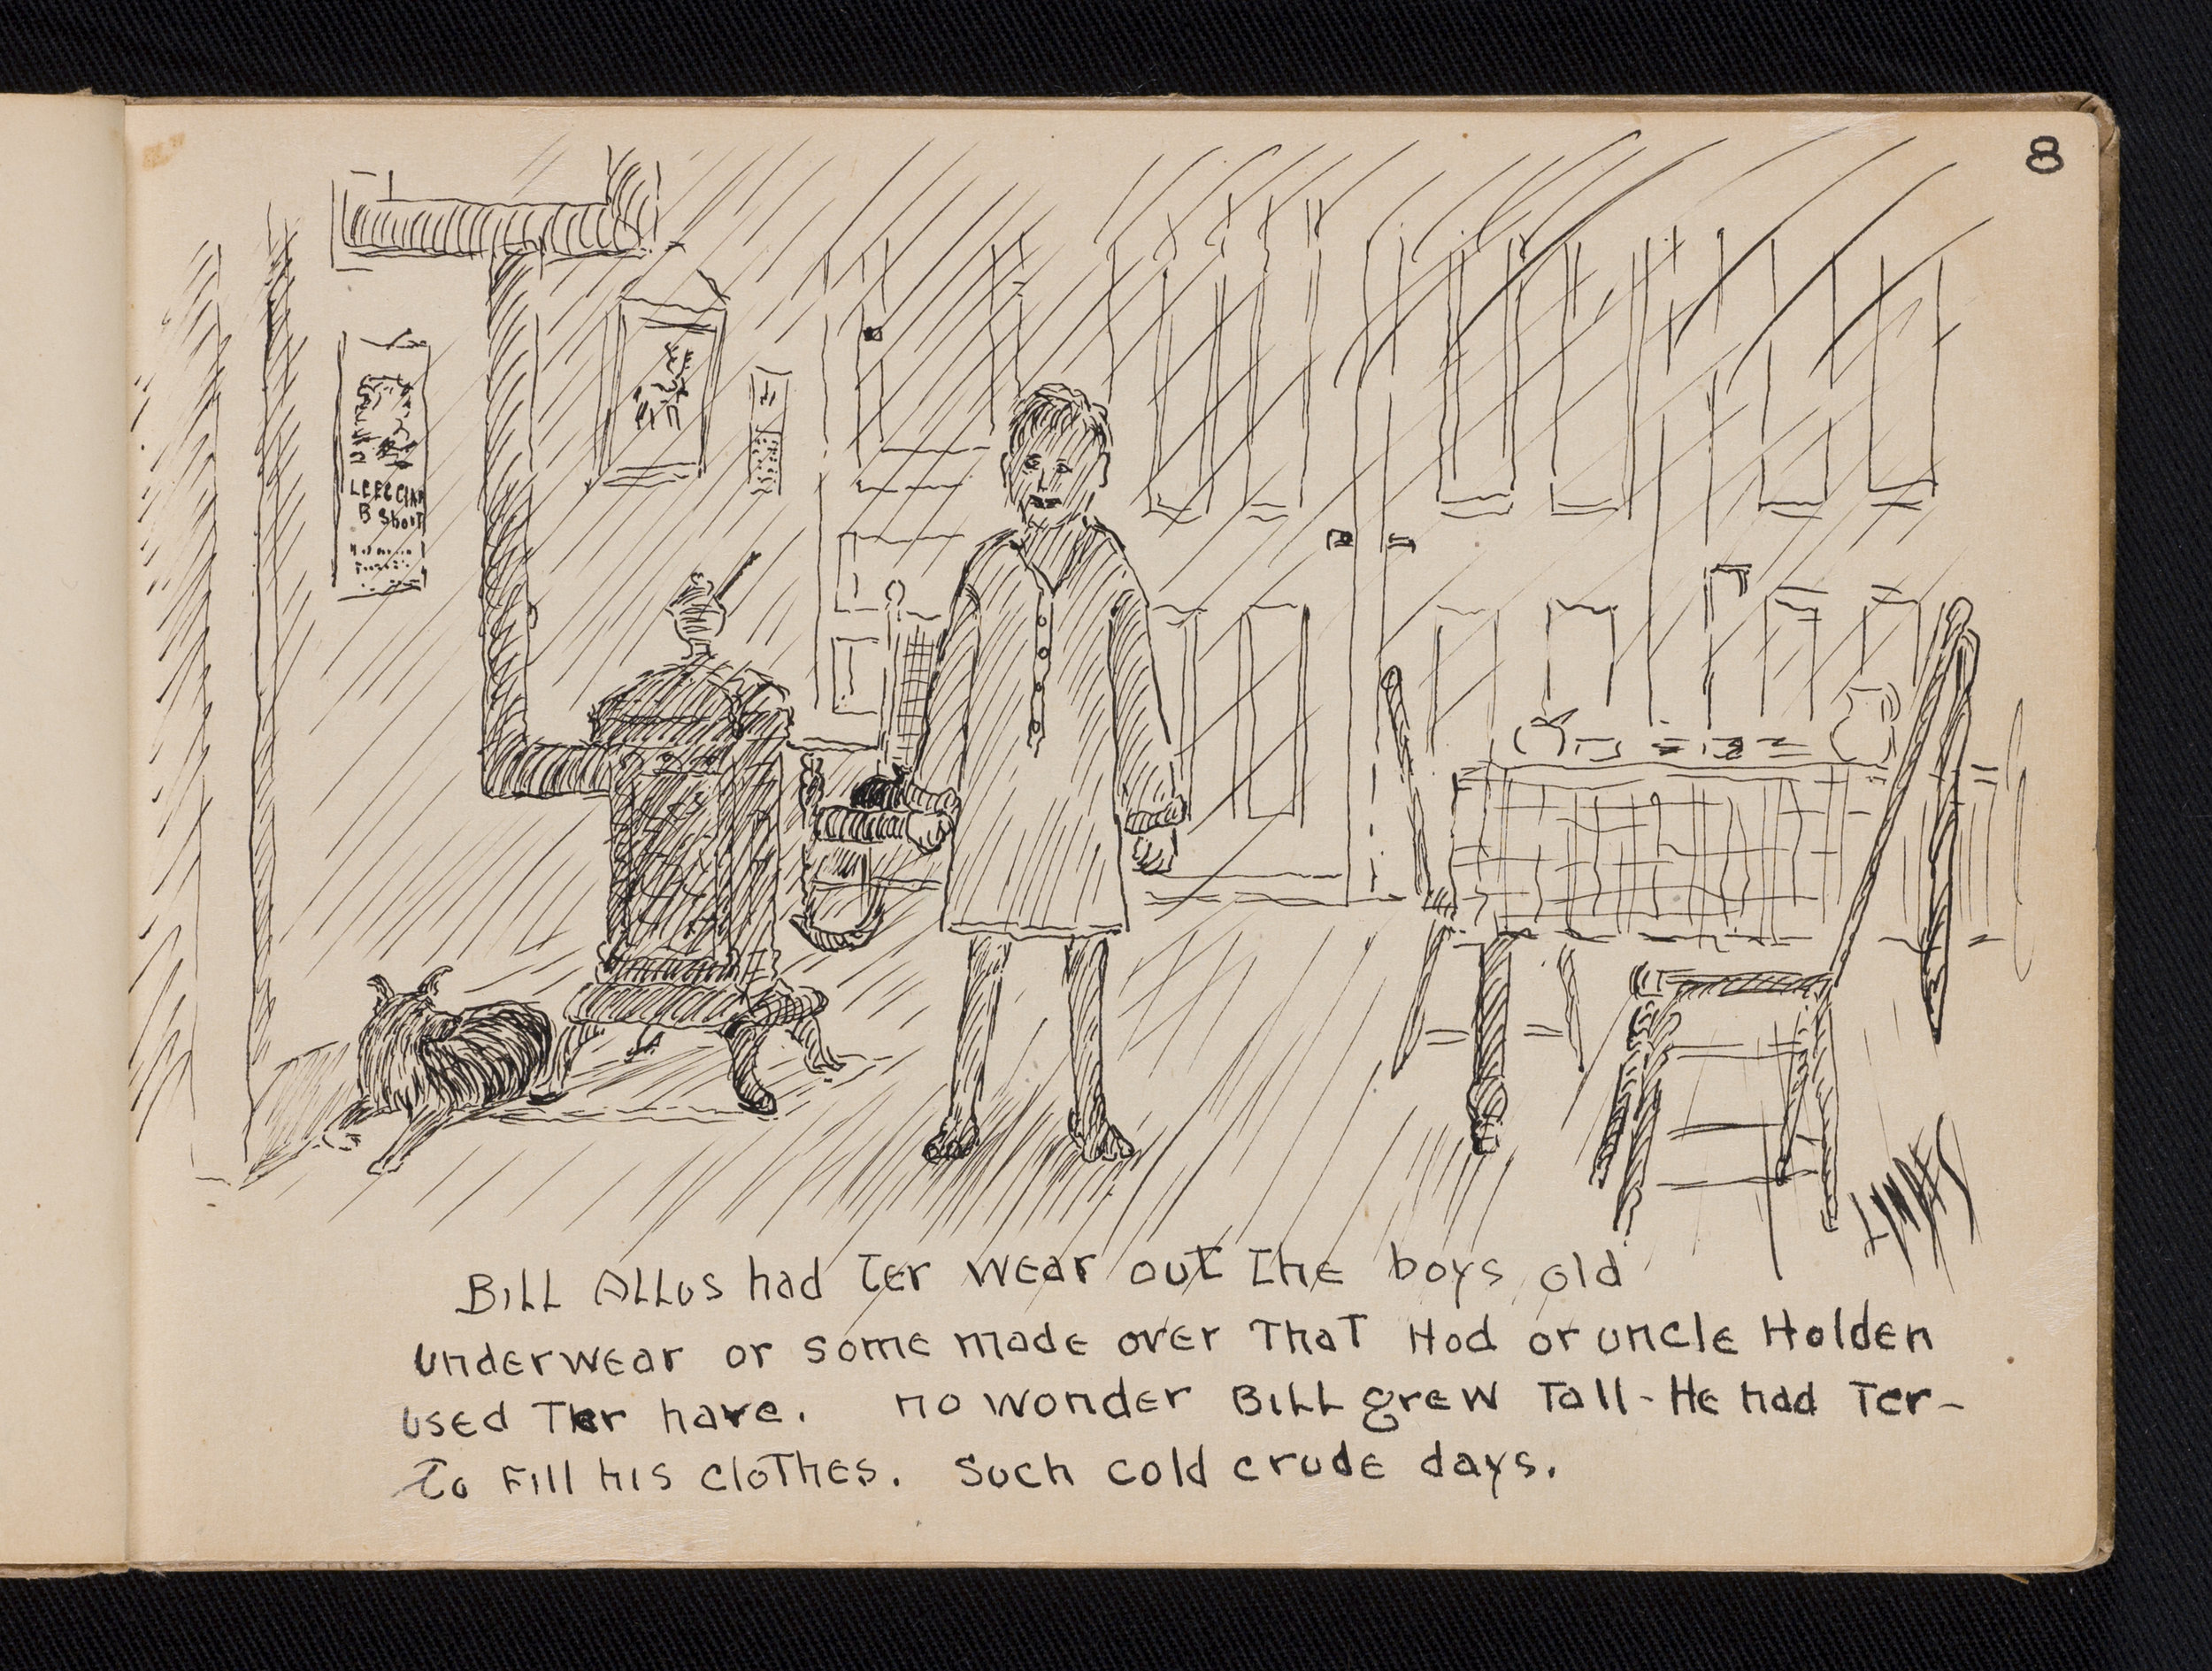 8
Bill Allus had Ter wear out The boys old
underwear or some made over That Hod or uncle Holden
used Ter have. no wonder Bill grew Tall - He had Ter -
To Fill his cloThes. Such cold crude days.